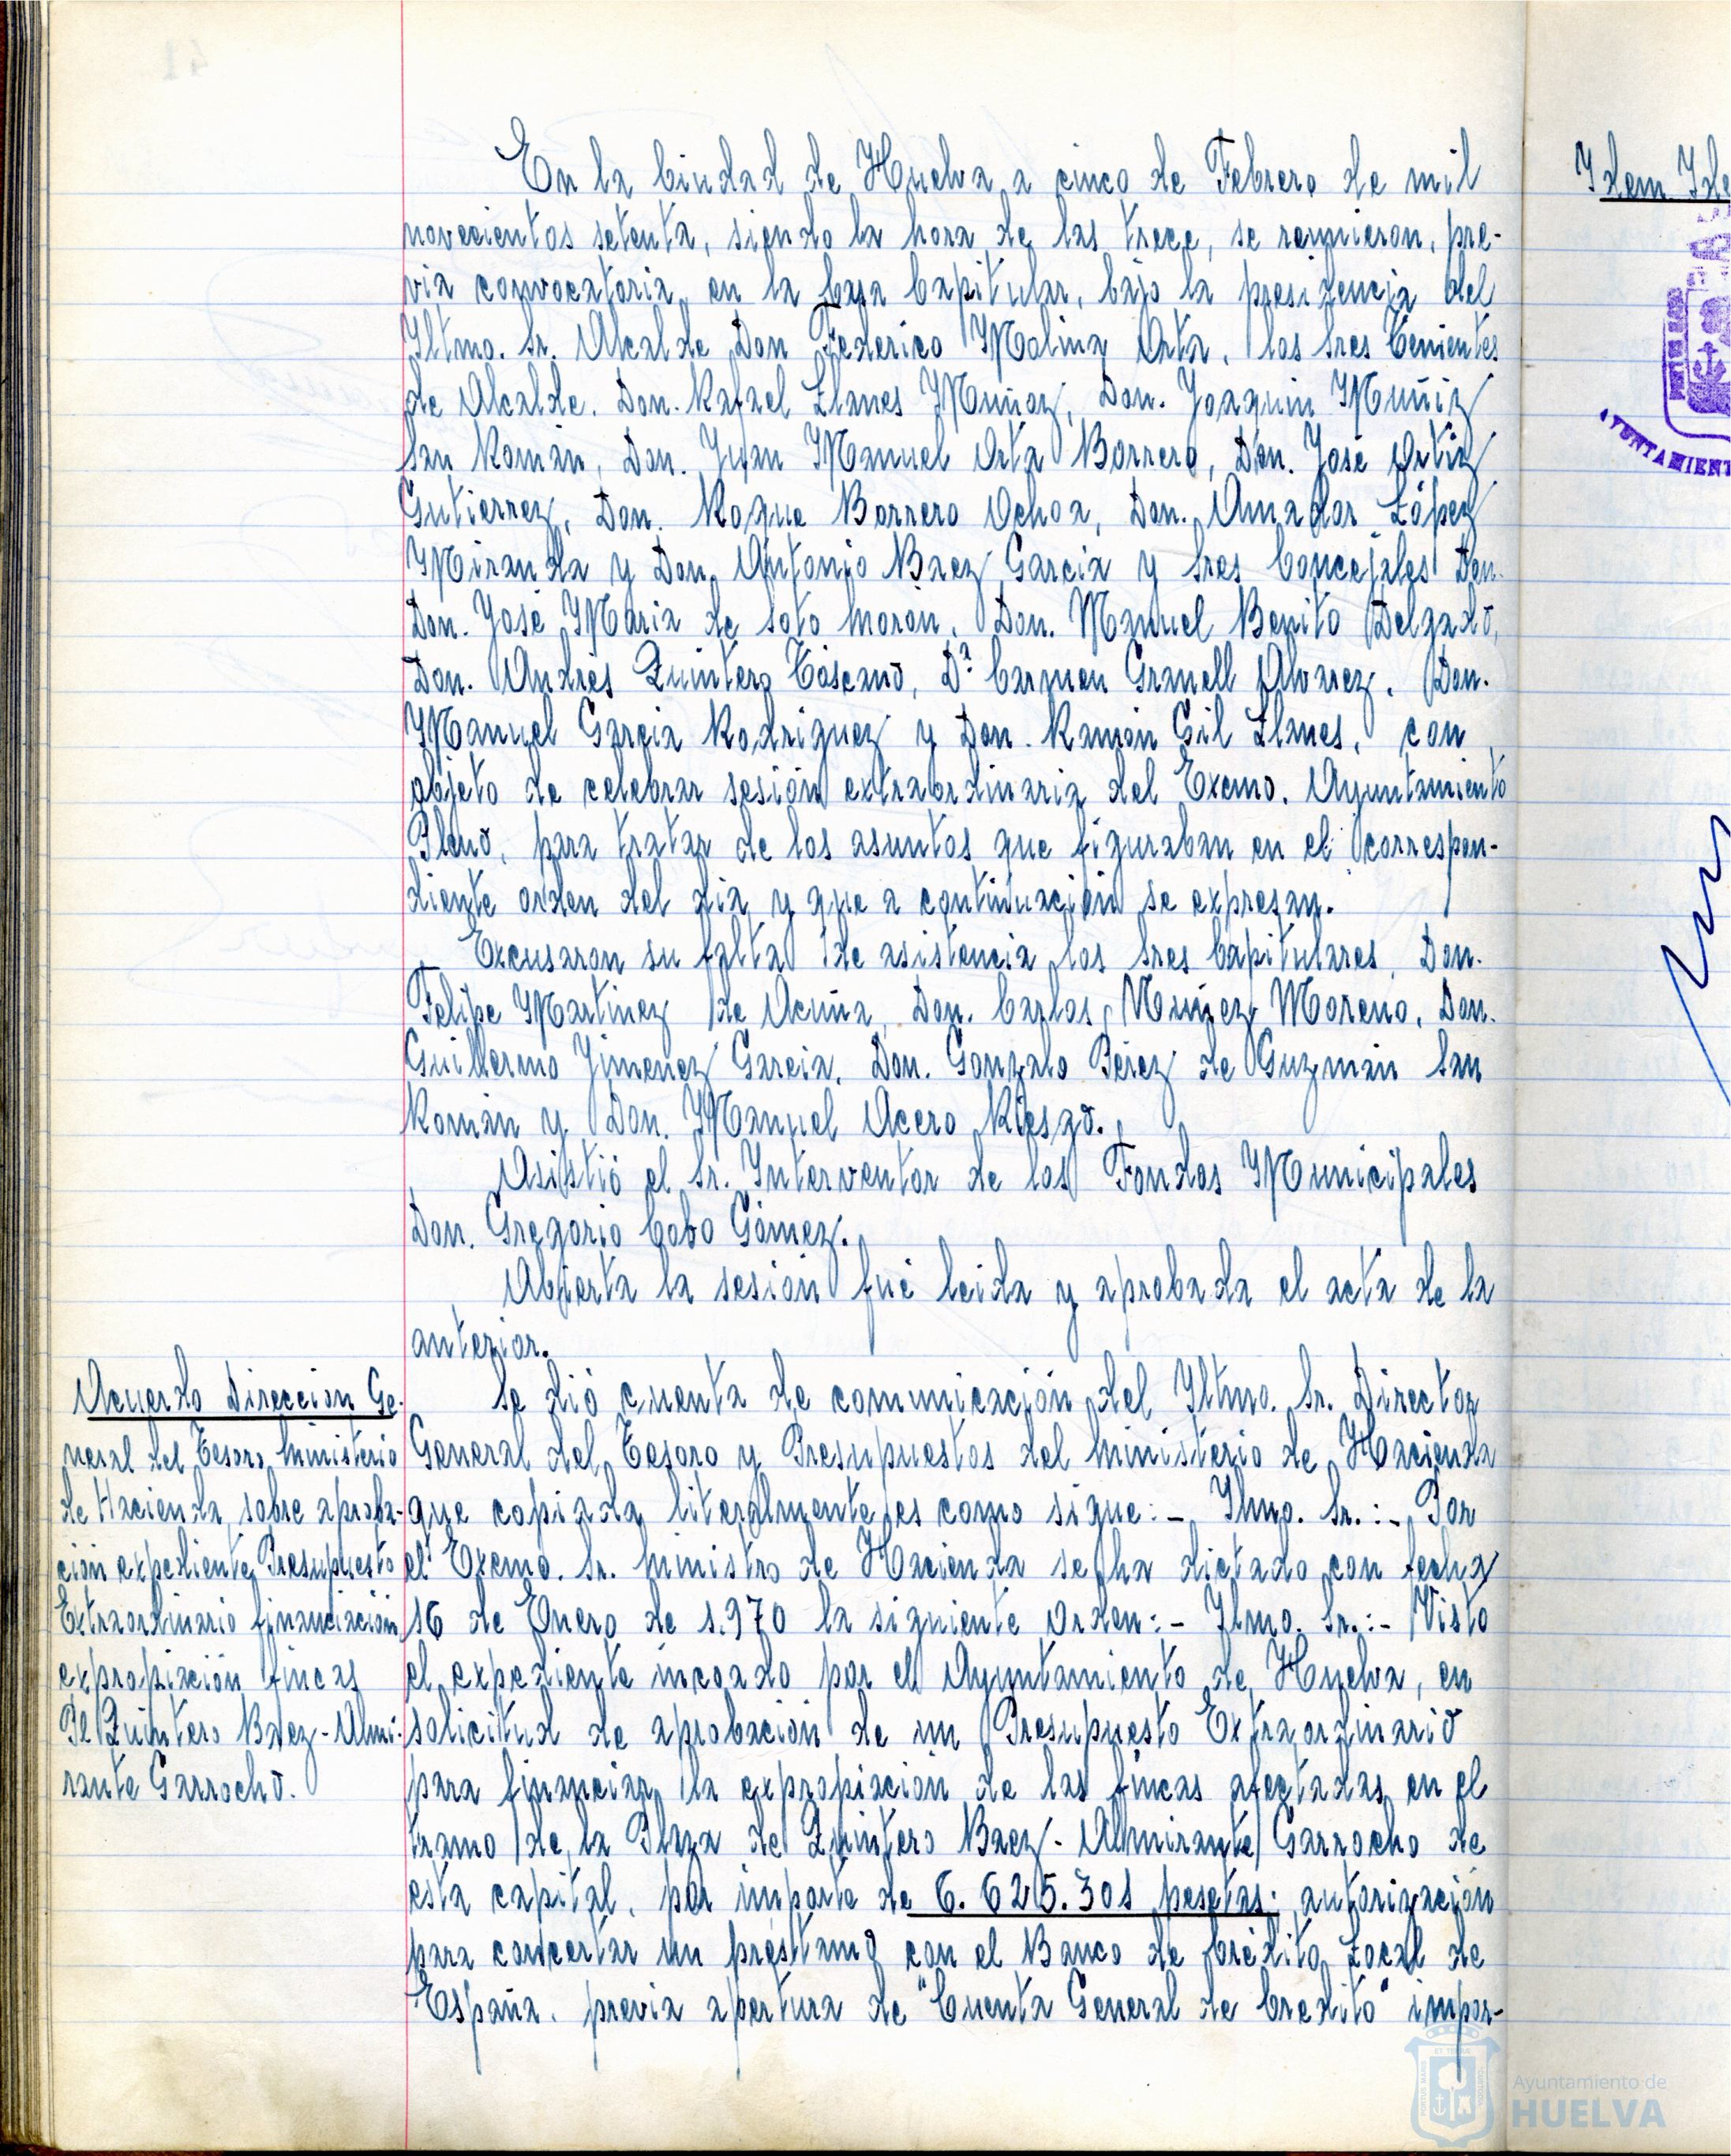 En la Ciudad de Huelva a cinco de Febrero de mil
novecientos setenta, siendo la hora de las trece, se reunieron, pre-
via convocatoria, en la Casa Capitular, bajo la presidencia del
Iltmo. Sr. Alcalde Don Federico Molina Orta, los Sres Tenientes
de Alcalde. Don. Rafael Llanes Muñoz, Don. Joaquin Muñiz
San Román, Don. Juan Manuel Orta Borrero, Don. José Ortiz
Gutierrez, Don. Roque Borrero Ochoa, Don. Amador López
Miranda y Don. Antonio Baez Garcia y Sres Concejales Don.
Don. José Maria de Soto Morón, Don. Manuel Benito Delgado,
Don. Andrés Quintero Toscano, Dª Carmen Granell Alvarez, Don.
Manuel Garcia Rodriguez y Don. Ramón Gil Llanes, con
objeto de celebrar sesión extraordinaria del Excmo. Ayuntamiento
Pleno, para tratar de los asuntos que figuraban en el correspon-
diente orden del dia y que a continuación se expresan.
Excusaron su falta de asistencia los Sres Capitulares, Don.
Felipe Martinez de Acuña, Don. Carlos Nuñez Moreno, Don.
Guillermo Jimenez Garcia, Don. Gonzalo Pérez de Guzmán San
Román y Don. Manuel Acero Riesgo.
Asistió el Sr. Interventor de los Fondos Municipales
Don. Gregorio Cobo Gómez.
Abierta la sesión fué leida y aprobada el acta de la
anterior.
Acuerdo Dirección Ge-
neral del Tesoro Ministerio
de Hacienda, sobre aproba-
ción expediente Presupuesto
Extraordinario financiación
expropiación fincas
Pl Quintero Baez-Almi-
rante Garrocho.
Se dió cuenta de comunicación del Iltmo. Sr. Director
General del Tesoro y Presupuestos del Ministerio de Hacienda
que copiada literalmente es como sigue:- Ilmo. Sr.:- Por
el Excmo. Sr. Ministro de Hacienda se ha dictado con fecha
16 de Enero de 1.970 la siguiente Orden:- Ilmo. Sr.:- Visto
el expediente incoado por el Ayuntamiento de Huelva, en
solicitud de aprobación de un Presupuesto Extraordinario
para financiar la expropiación de las fincas afectadas en el
tramo de la Plaza de Quintero Baez- Almirante Garrocho de
esta capital, por importe de 6.625.301 pesetas; autorización
para concertar un préstamo con el Banco de Crédito Local de
España, previa apertura de "Cuenta General de Credito" impor-
Idem Ide
AYUNTAMIENT
Ayuntamiento de
HUELVA